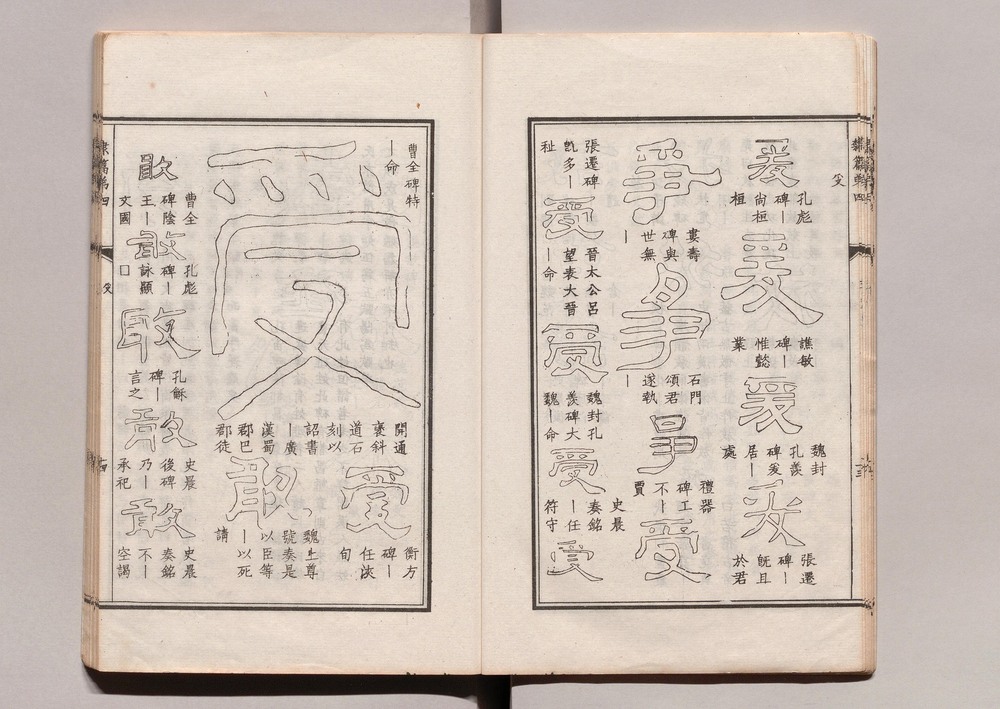 爰
孔彪
碑｜
尚桓
桓
爰
譙敏
碑｜
惟懿
業
爰
魏封
孔羨
碑爰
居｜
處
爰
張遷
碑｜
既且
於君
爭
婁壽
碑與
世無
｜
爭
石門
頌君
遂執
｜
爭
禮器
碑工
不｜
賈
受
張遷碑
凱多｜
祉
受
晉太公呂
望表大晉
｜命
受
魏封孔
羨碑大
魏｜命
受
史晨
奏銘
｜任
符守
受
曹全碑特
｜命
受
開通
褒斜
道石
刻以
詔書
｜廣
漢蜀
郡巴
郡徒
受
衡方
碑｜
任浹
旬
敢
魏上尊
號奏是
以臣等
｜以死
請
敢
曹全
碑陰
王｜
文國
敢
孔彪
碑｜
詠顯
口
敢
孔龢
碑｜
言之
敢
史晨
後碑
乃｜
承祀
敢
史晨
奏銘
不｜
空謁